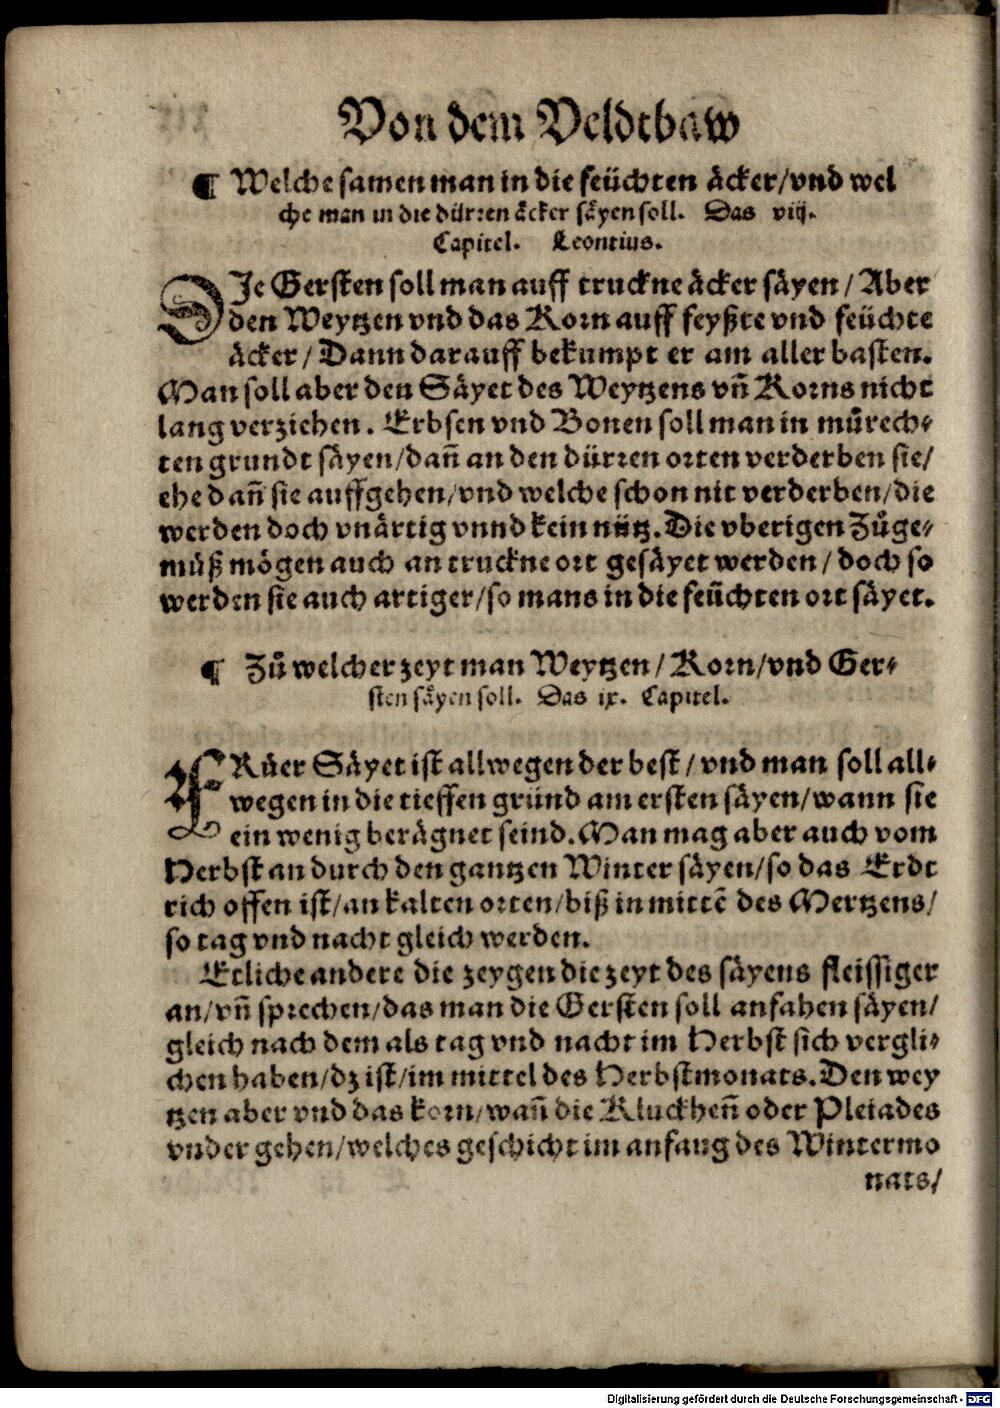 Von dem Veldtbaw
¶ Welche samen man in die feüchten äcker/vnd wel
che man in die dürren äcker säyen soll. Das viij.
Capitel. Leontius.
DJe Gersten soll man auff truckne äcker säyen / Aber
den Weytzen vnd das Korn auff feyßte vnd feüchte
äcker / Dann darauff bekumpt er am aller basten.
Man soll aber den Säyet des Weytzens vñ Korns nicht
lang verziehen. Erbsen vnd Bonen soll man in mürech-
ten grundt säyen/dañ an den dürren orten verderben sie/
ehe dañ sie auffgehen/vnd welche schon nit verderben/die
werden doch vnärtig vnnd kein nütz. Die vberigen Zůge-
müß mögen auch an truckne ort gesäyet werden / doch so
werden sie auch artiger/so mans in die feüchten ort säyet.
¶ Zů welcher zeyt man Weytzen / Korn/vnd Ger-
sten säyen soll. Das ix. Capitel.
FRüer Säyet ist allwegen der best / vnd man soll all-
wegen in die tieffen gründ am ersten säyen/wann sie
ein wenig berägnet seind. Man mag aber auch vom
Herbst an durch den gantzen Winter säyen/so das Erdt
rich offen ist/an kalten orten/biß in mittẽ des Mertzens/
so tag vnd nacht gleich werden.
Etliche andere die zeygen die zeyt des säyens fleissiger
an/vñ sprechen/das man die Gersten soll anfahen säyen/
gleich nach dem als tag vnd nacht im Herbst sich vergli-
chen haben/dz ist/im mittel des Herbstmonats. Den wey
tzen aber vnd das korn/wañ die Kluckheñ oder Pleiades
vnder gehen/welches geschicht im anfang des Wintermo
nats/
Digitalisierung gefördert durch die Deutsche Forschungsgemeinschaft - DFG